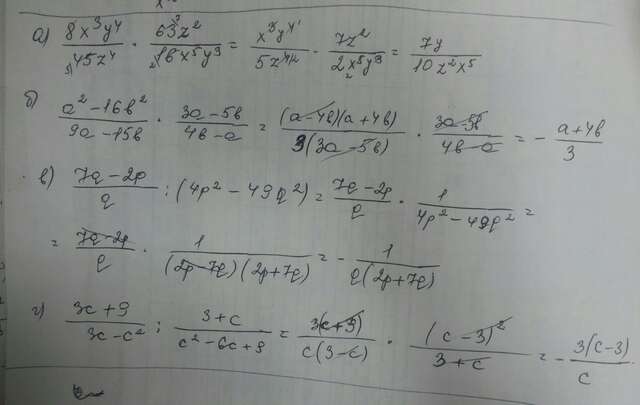 а) 8x³y⁴/45z⁴ · 63z²/16x⁵y³ = x³y⁴/5z⁴ · 7z²/2x⁵y³ = 7y/10z²x⁵
б) a²-16b²/9a-15b · 3a-5b/4b-a = (a-4b)(a+4b)/3(3a-5b) · 3a-5b/4b-a = - a+4b/3
в) 7q-2p/q : (4p²-49q²) = 7q-2p/q · 1/4p²-49q² =
= 7q-2p/q · 1/(2p-7q)(2p+7q) = - 1/q(2p+7q)
г) 3c+9/3c-c² : 3+c/c²-6c+9 = 3(c+3)/c(3-c) · (c-3)²/3+c = - 3(c-3)/c